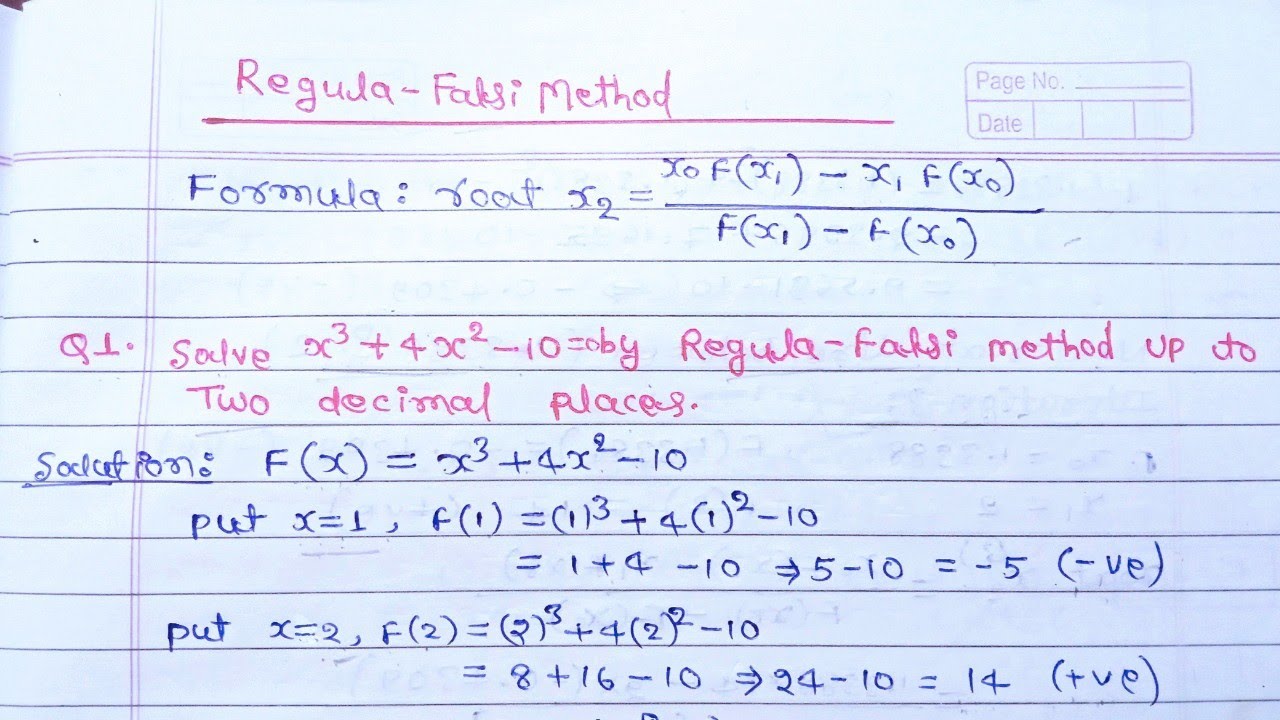 Regula-Falsi Method
Page No.
Date
Formula: root x₂ = (x₀ F(x₁) - x₁ F(x₀)) / (F(x₁) - F(x₀))
Q1. Solve x³ + 4x² - 10 = 0 by Regula-Falsi method up to
Two decimal places.
Solution: F(x) = x³ + 4x² - 10
put x=1, F(1) = (1)³ + 4(1)² - 10
= 1 + 4 - 10 ⇒ 5 - 10 = -5 (-ve)
put x=2, F(2) = (2)³ + 4(2)² - 10
= 8 + 16 - 10 ⇒ 24 - 10 = 14 (+ve)